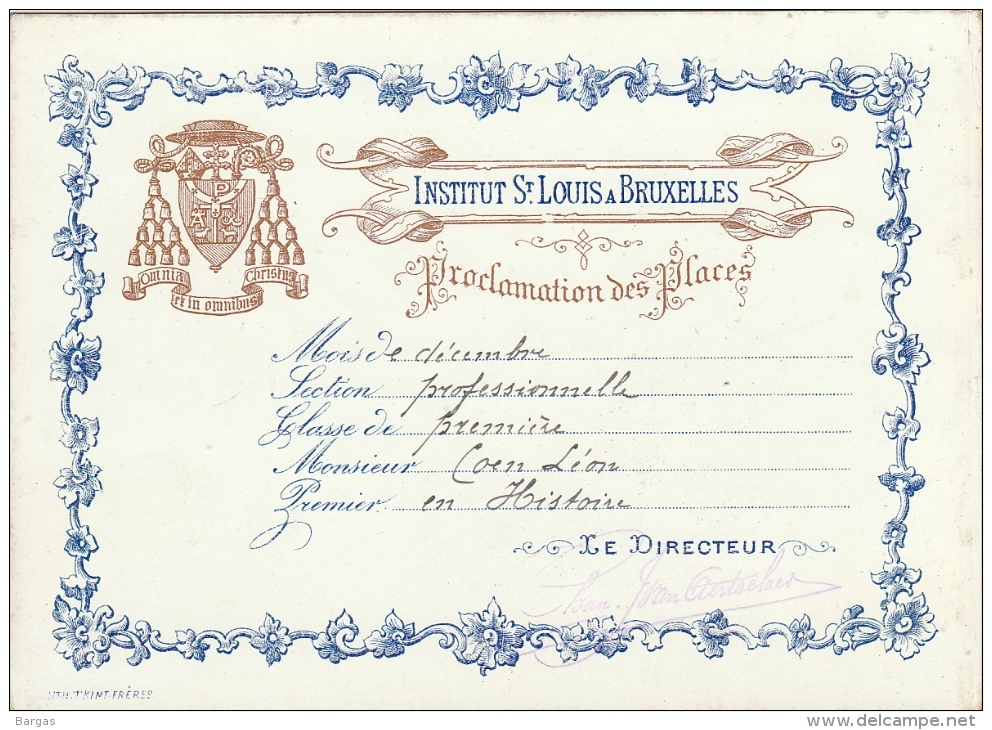 INSTITUT ST. LOUIS A BRUXELLES
Proclamation des Places
Omnia Christus
et in omnibus
P
A
Mois de décembre
Section professionnelle
Classe de première
Monsieur Coen Léon
Premier en Histoire
LE DIRECTEUR
LITH. T'KINT FRÈRES.
Bargas
www.delcampe.net